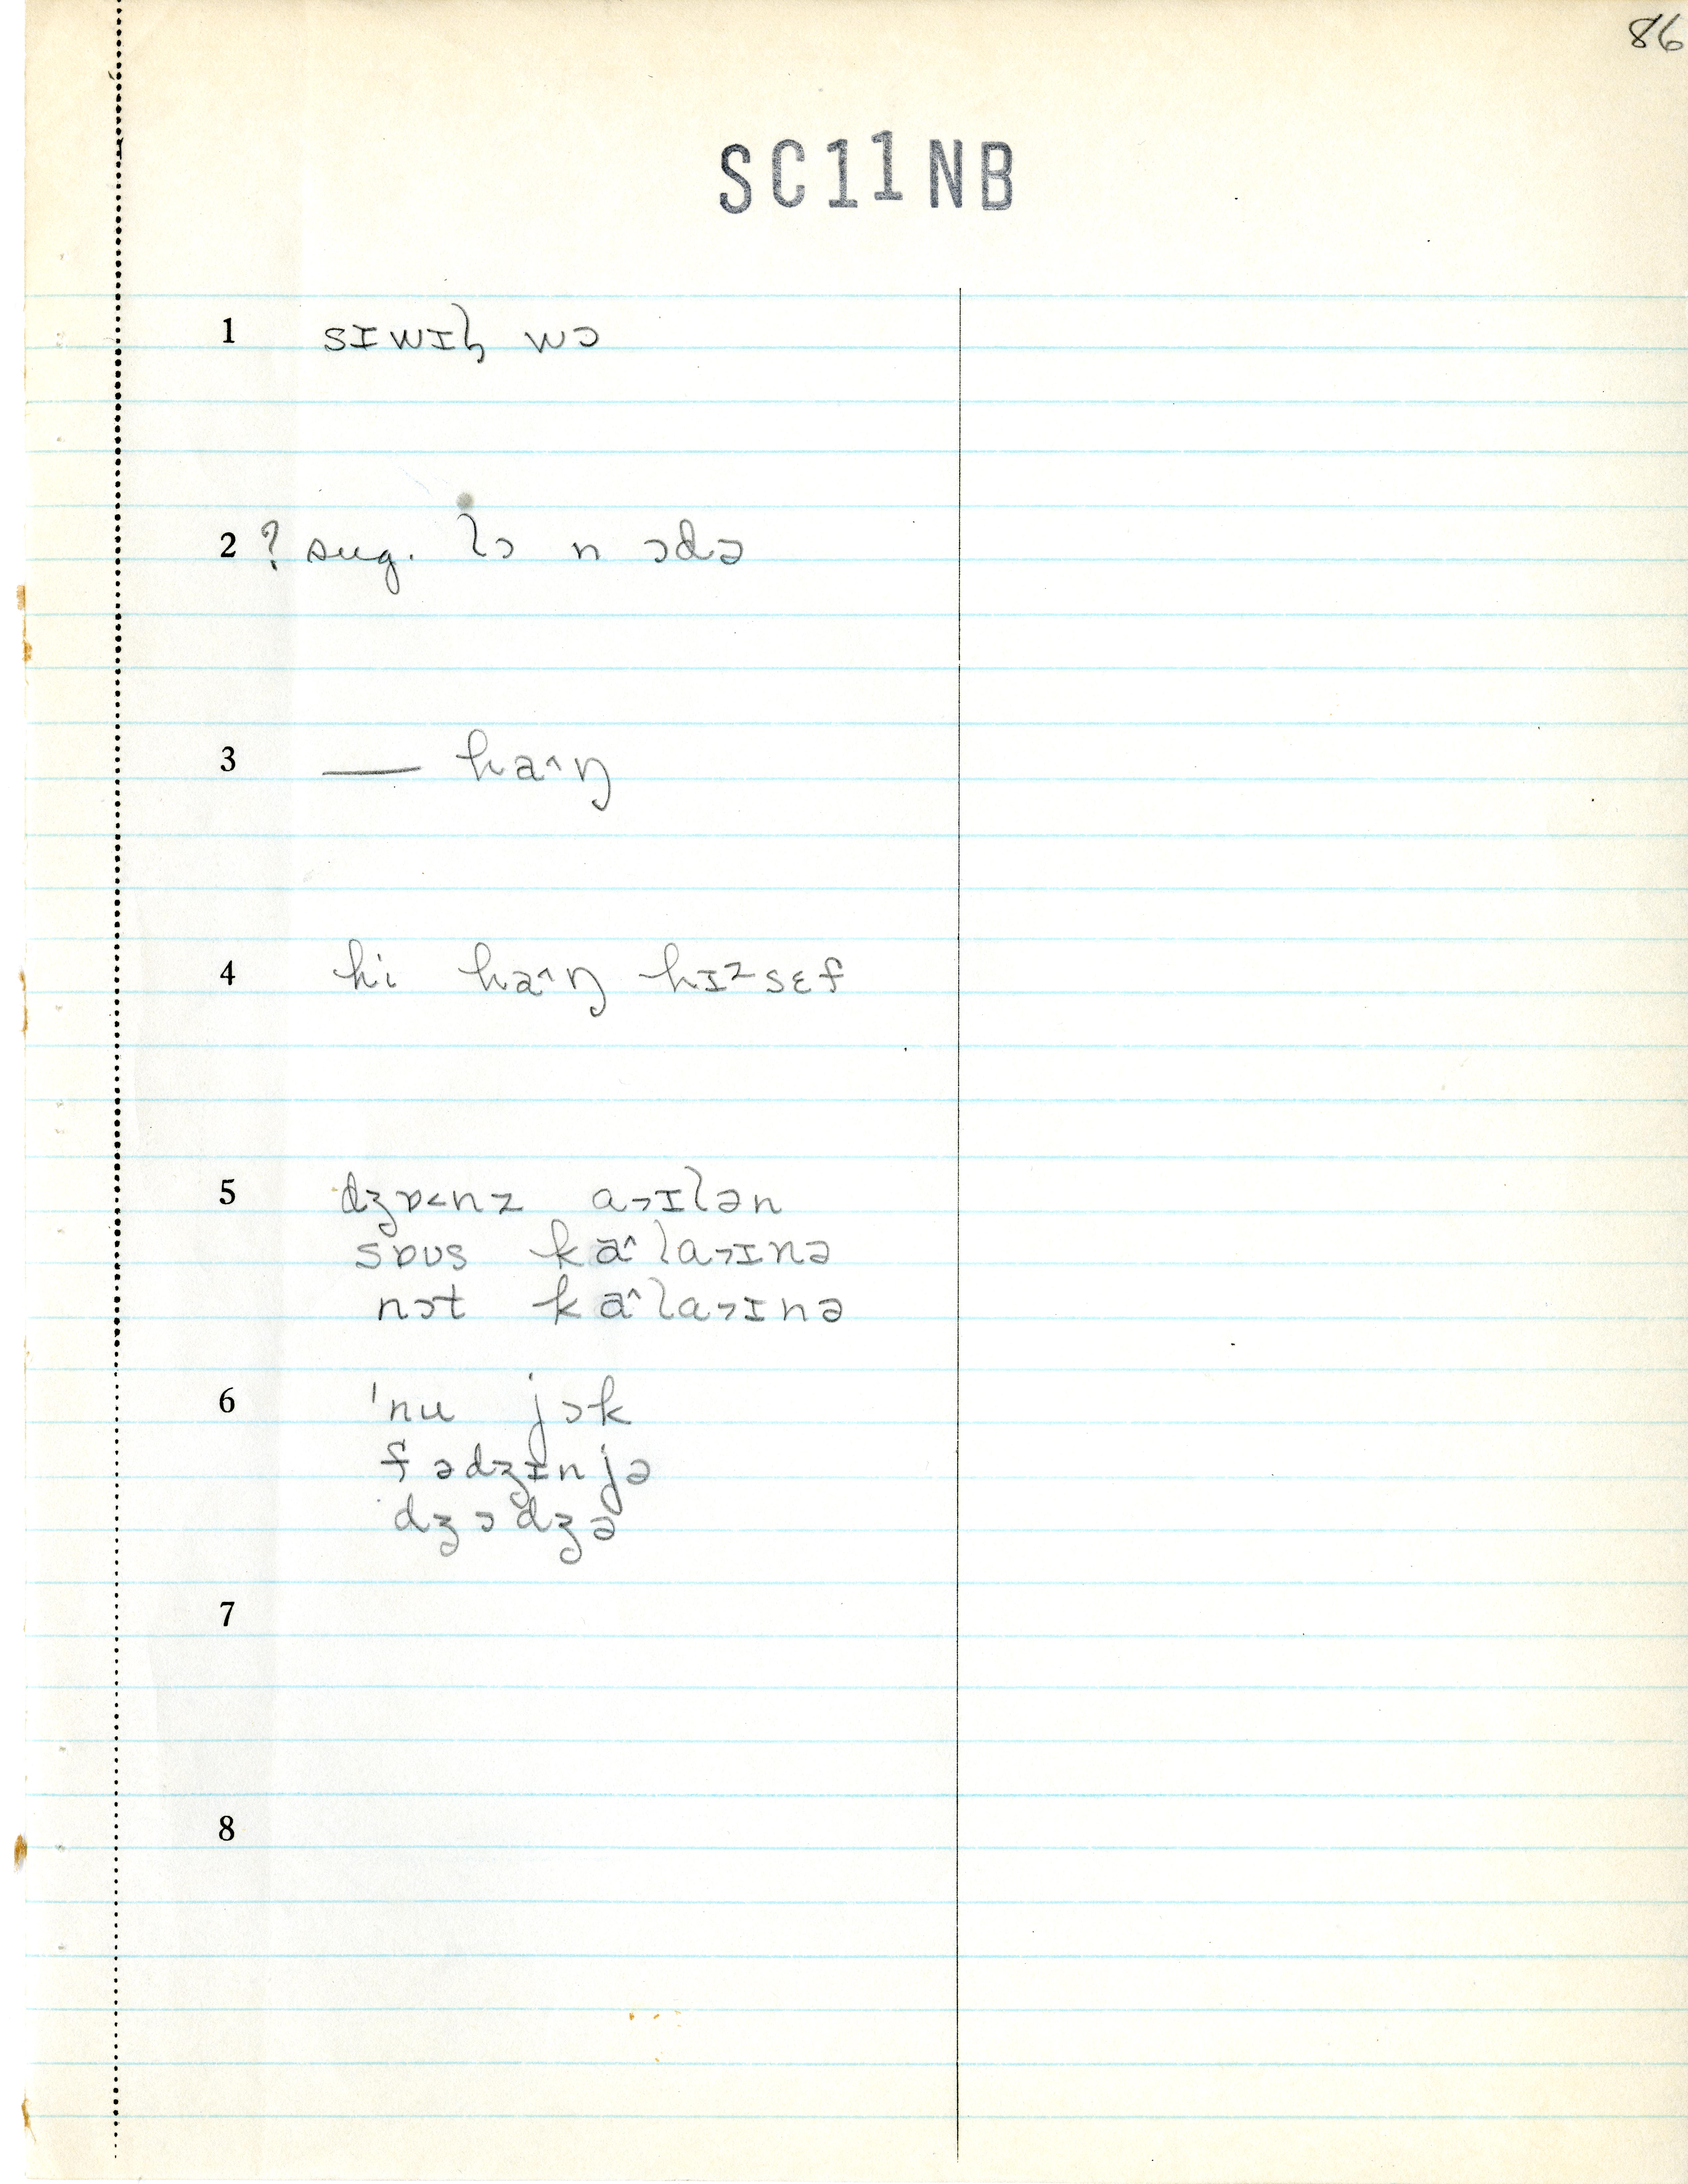 86
SC11NB
1 sɪwɪɫ̡ wɔ
2 ? sug. lɔ n ɔdə
3 — ha^ŋ
4 hi ha^ŋ hɪᶻsɛf
5 dʒɒ<nz a>ɪlən
sɒʊs ka^la>ɪnə
nɔt ka^la>ɪnə
6 'nu jɔk
fədʒɪnjə
'dʒɔdʒə
7
8